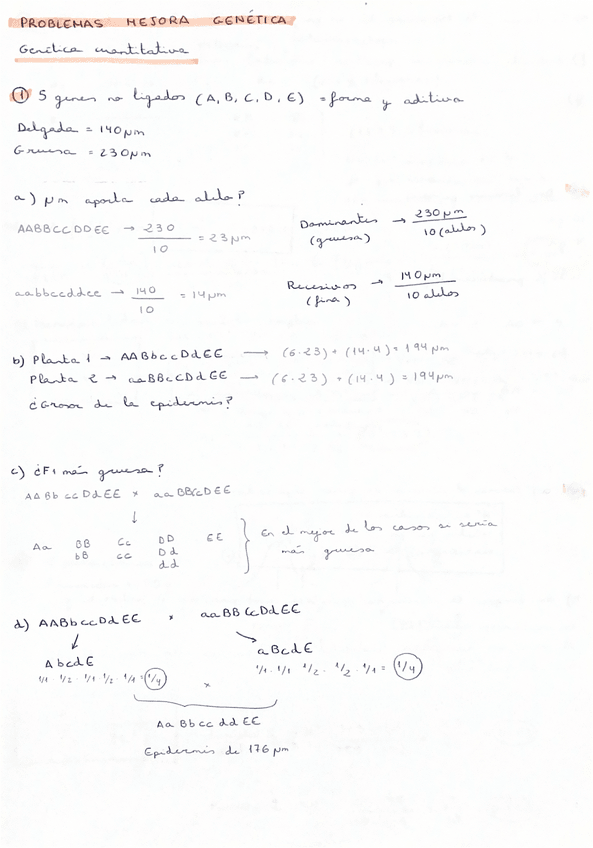 PROBLEMAS MEJORA GENÉTICA
Genética cuantitativa
① 5 genes no ligados (A, B, C, D, E) = forma y aditiva
Delgada = 140 µm
Gruesa = 230 µm
a) µm aporta cada alelo?
AABBCCDDEE → 230/10 = 23 µm
Dominantes (gruesa) → 230 µm / 10 (alelos)
aabbccddee → 140/10 = 14 µm
Recesivos (fina) → 140 µm / 10 alelos
b) Planta 1 → AABbccDdEE → (6·23) + (14·4) = 194 µm
Planta 2 → aaBBCcDdEE → (6·23) + (14·4) = 194 µm
¿Grosor de la epidermis?
c) ¿F1 más gruesa?
AABbccDdEE × aaBBCcDEE
↓
Aa BB Cc DD EE
bB cc Dd
dd
En el mejor de los casos si sería
más gruesa
d) AABbccDdEE × aaBBCcDdEE
AbcdE
1/1 · 1/2 · 1/1 · 1/2 · 1/1 = 1/4
aBcdE
1/1 · 1/1 · 1/2 · 1/2 · 1/1 = 1/4
×
AaBbccddEE
Epidermis de 176 µm